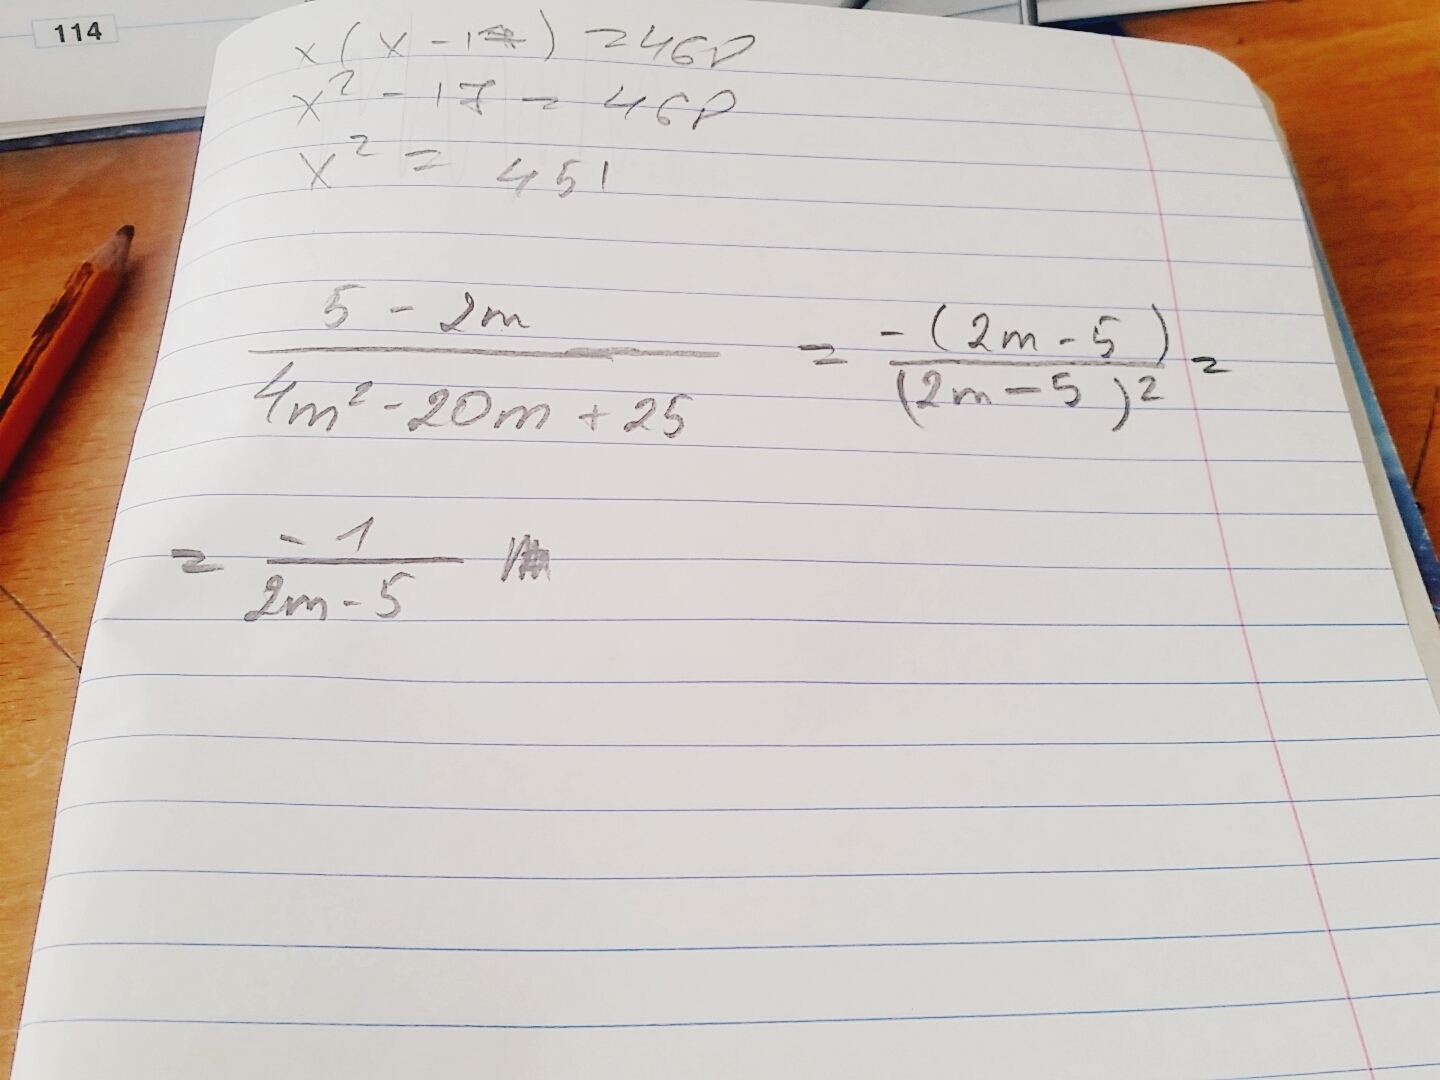 114
x(x-17)=468
x²-17=468
x²=451
5-2m/4m²-20m+25 = -(2m-5)/(2m-5)² =
= -1/2m-5